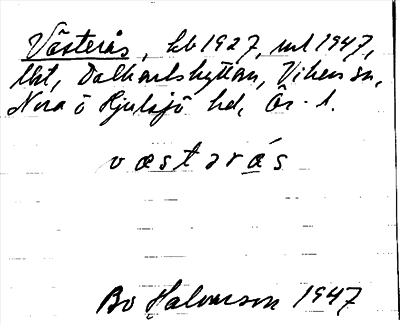 Västerås, hb 1927, ml 1947,
lht, Dalkarlshyttan, Vikers sn,
Nora o Hjulsjö hd, Ör. l.
væstərás
Bo Halvarson 1947